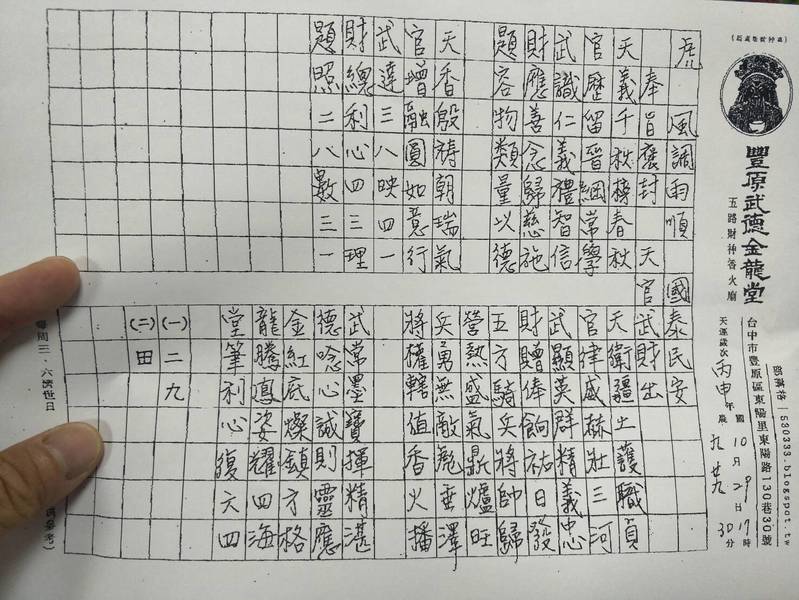 豐原武德金龍堂
五路財神香火廟
部落格｜530333.blogspot.tw
台中市豐原區東陽里東陽路130巷30號
天運歲次丙申年
國10月29日17時30分
農九廿九
風調雨順
國泰民安
奉旨褒封
天官武財出
天義千秋樽春秋
官歷留晉綱常學
武識仁義禮智信
財應善念歸慈施
題容物類量以德
天香殷禱朝瑞氣
官增融圓如意行
武達三八映四一
財總利心四三理
題照二八數三一
天衛疆土護職員
官律威赫壯三河
武顯英群精義忠
財贈俸餉祐日發
五方騎兵將帥歸
營熱盛氣鼎爐旺
兵勇無敵彪垂澤
將權轄值香火播
武常墨寶揮精湛
德唸心誠則靈應
金紅底燦鎮方格
龍騰鳳姿耀四海
堂筆利心復六四
(一)二九
(二)田
每周三、六濟世日
參考)